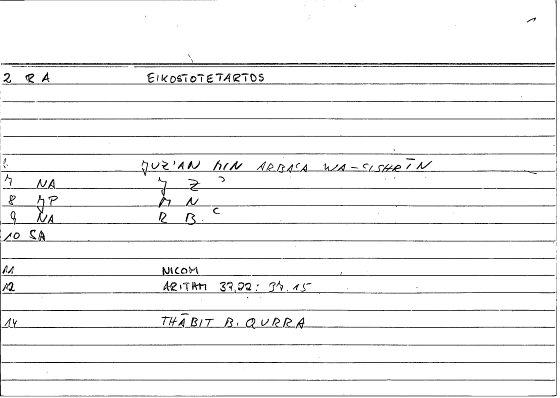 2 R A EIKOSTOTETARTOS
1. ǦUZ'AN MIN ARBAʿA WA-ʿISHRĪN
7 NA Ǧ Z ʾ
8 MP M N
9 NA R B ʿ
10 SA
11 NICOM
12 ARITHM 37,22 : 37.15
14 THĀBIT B. QURRA